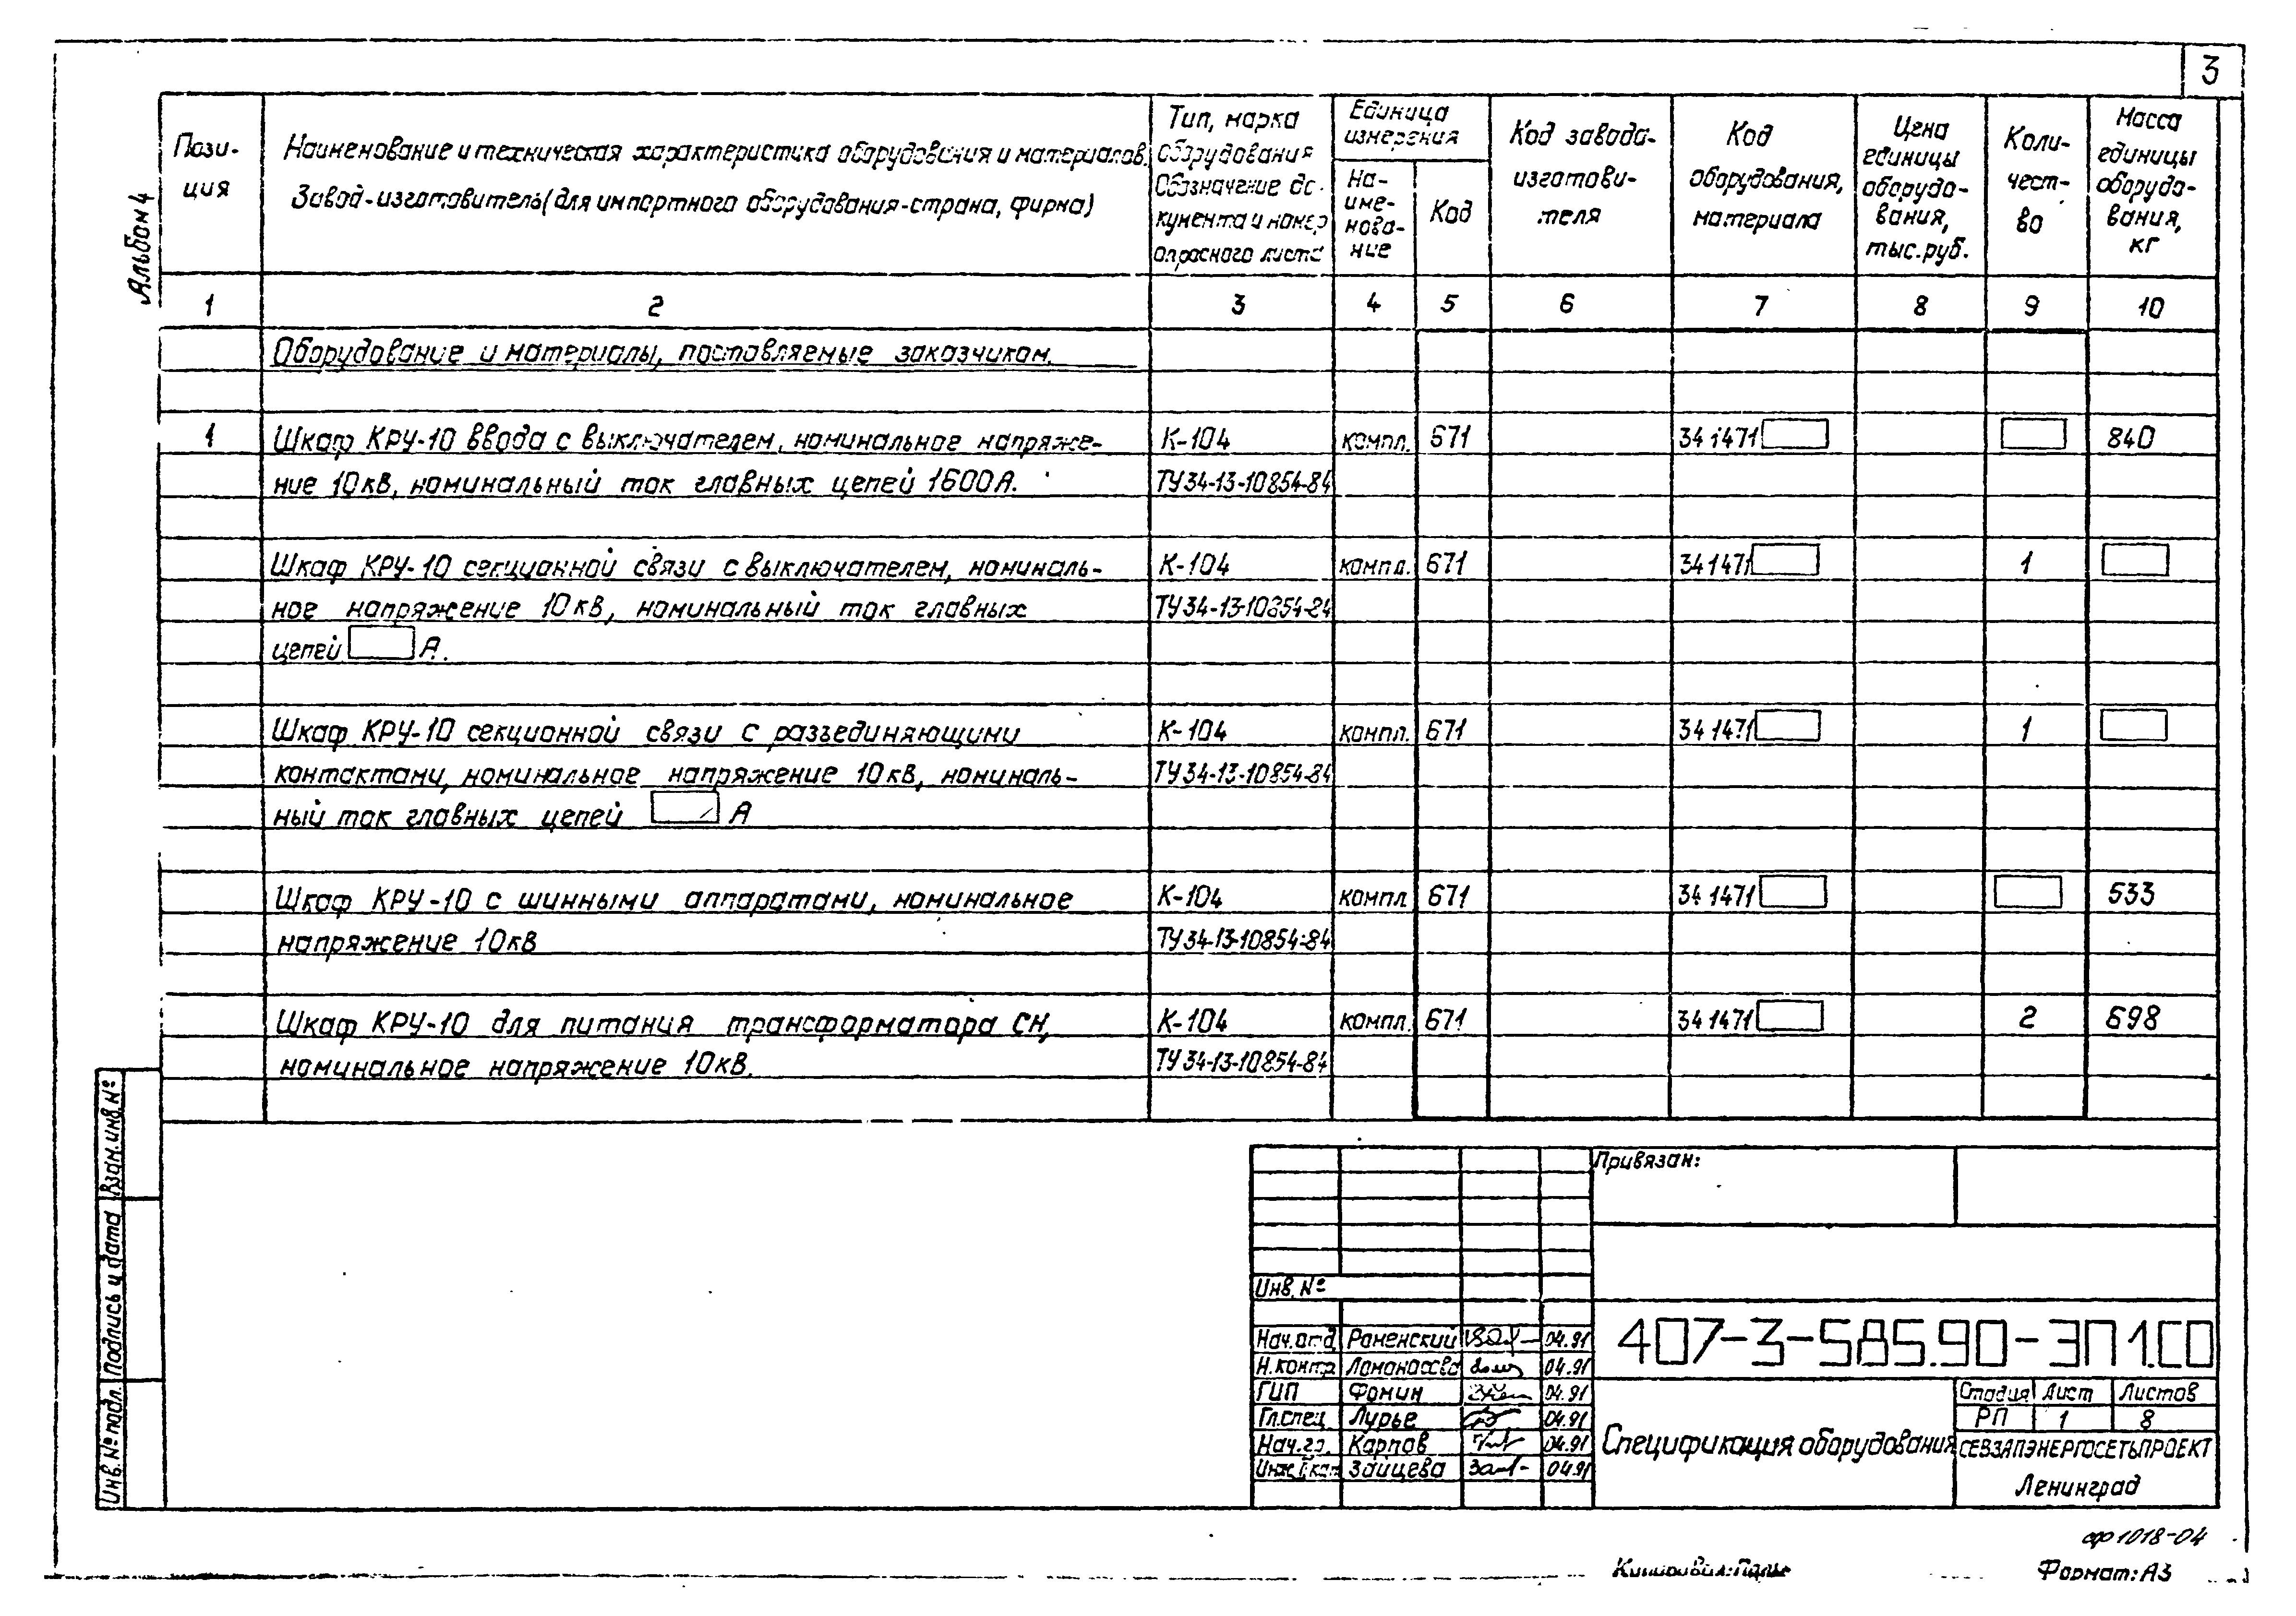 3
Альбом 4
Пози-
ция
Наименование и техническая характеристика оборудования и материалов.
Завод-изготовитель (для импортного оборудования-страна, фирма)
Тип, марка
оборудования
Обозначение до-
кумента и номер
опросного листа
Единица
измерения
На-
име-
нова-
ние
Код
Код завода-
изготови-
теля
Код
оборудования,
материала
Цена
единицы
оборудо-
вания,
тыс. руб.
Коли-
чест-
во
Масса
единицы
оборудо-
вания,
кг
1 2 3 4 5 6 7 8 9 10
Оборудование и материалы, поставляемые заказчиком.
1 Шкаф КРУ-10 ввода с выключателем, номинальное напряже- К-104 компл. 671 341471 840
ние 10кВ, номинальный ток главных цепей 1600А. ТУ34-13-10854-84
Шкаф КРУ-10 секционной связи с выключателем, номиналь- К-104 компл. 671 341471 1
ное напряжение 10кВ, номинальный ток главных ТУ34-13-10854-84
цепей А.
Шкаф КРУ-10 секционной связи с разъединяющими К-104 компл. 671 341471 1
контактами, номинальное напряжение 10кВ, номиналь- ТУ34-13-10854-84
ный ток главных цепей А
Шкаф КРУ-10 с шинными аппаратами, номинальное К-104 компл 671 341471 533
напряжение 10кВ ТУ34-13-10854-84
Шкаф КРУ-10 для питания трансформатора СН, К-104 компл. 671 341471 2 698
номинальное напряжение 10кВ. ТУ34-13-10854-84
Взам. инв. №
Подпись и дата
Инв. № подл.
Привязан:
Инв. №
Нач.отд Раменский 04.91
Н.контр Ломоносова 04.91
ГИП Фомин 04.91
Гл.спец Лурье 04.91
Нач.гр. Карпов 04.91
Зайцева 04.91
407-3-585.90-ЭП1.СО
Спецификация оборудования
Стадия Лист Листов
РП 1 8
СЕВЗАПЭНЕРГОСЕТЬПРОЕКТ
Ленинград
сф 1018-04
Формат: А3